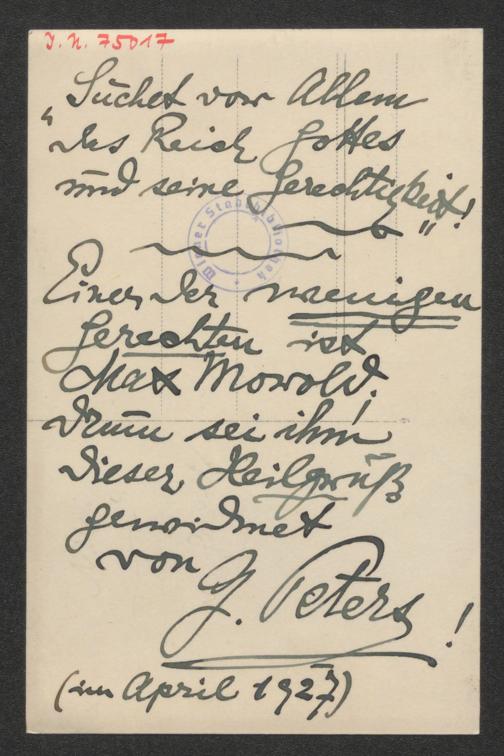 I. N. 75017
„Suchet vor Allem
das Reich Gottes
und seine Gerechtigkeit!“
Wiener Stadtbibliothek
Einer der wenigen
Gerechten ist
Max Morold!
Drum sei ihm
dieser Heilgruß
gewidmet
von
G. Peters!
(im April 1927)